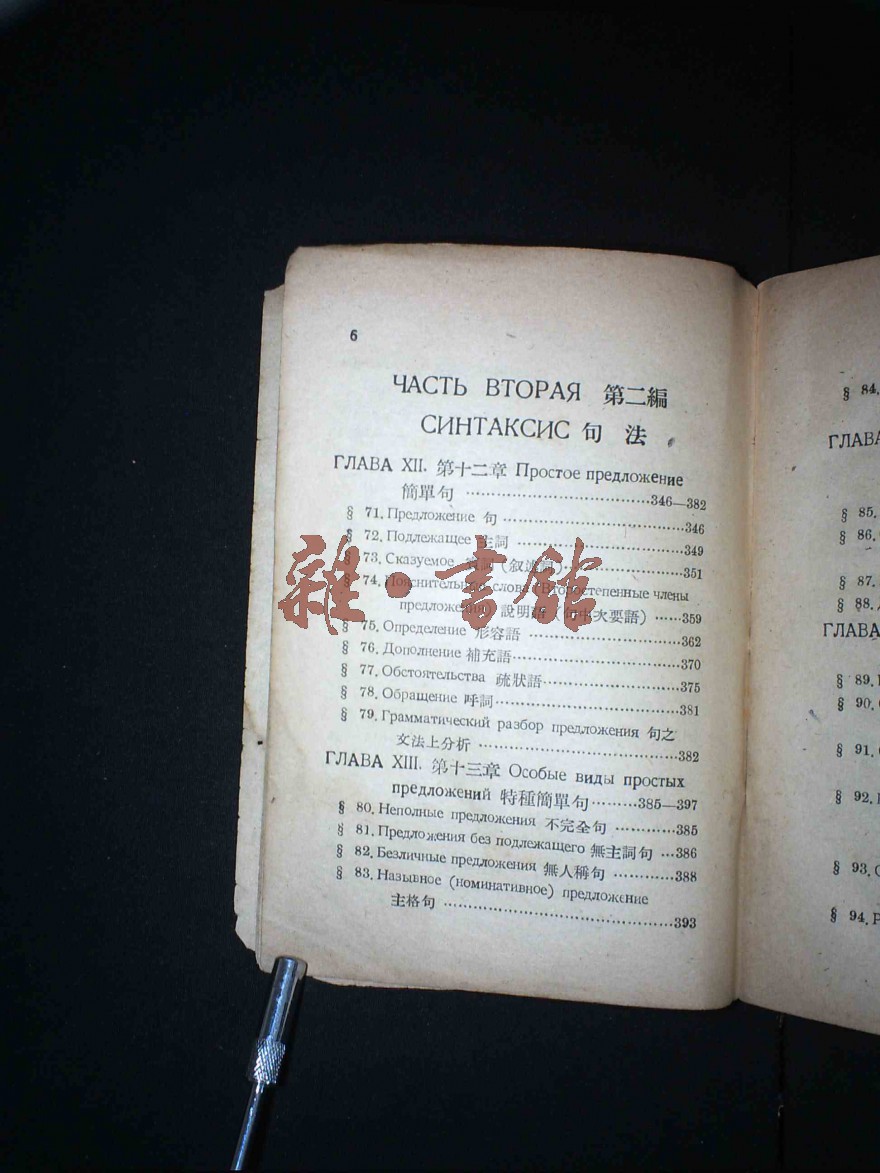 6
ЧАСТЬ ВТОРАЯ 第二編
СИНТАКСИС 句 法
ГЛАВА XII. 第十二章 Простое предложение
簡單句 ..................................346—382
§ 71. Предложение 句 ..................................346
§ 72. Подлежащее 主詞 ..................................349
§ 73. Сказуемое ..................................351
§ 74. Пояснительные слова (Второстепенные члены
предложения) 說明語 (句中次要語) ......359
§ 75. Определение 形容語 ..................................362
§ 76. Дополнение 補充語..................................370
§ 77. Обстоятельства 疏狀語..................................375
§ 78. Обращение 呼詞..................................381
§ 79. Грамматический разбор предложения 句之
文法上分析 ..................................382
ГЛАВА XIII. 第十三章 Особые виды простых
предложений 特種簡單句.........385—397
§ 80. Неполные предложения 不完全句 ............385
§ 81. Предложения без подлежащего 無主詞句 ...386
§ 82. Безличные предложения 無人稱句 ............388
§ 83. Назывное (номинативное) предложение
主格句 ..................................393
雜·書館
§ 84.
ГЛАВА
§ 85.
§ 86.
§ 87.
§ 88.
ГЛАВА
§ 89.
§ 90.
§ 91.
§ 92.
§ 93.
§ 94.